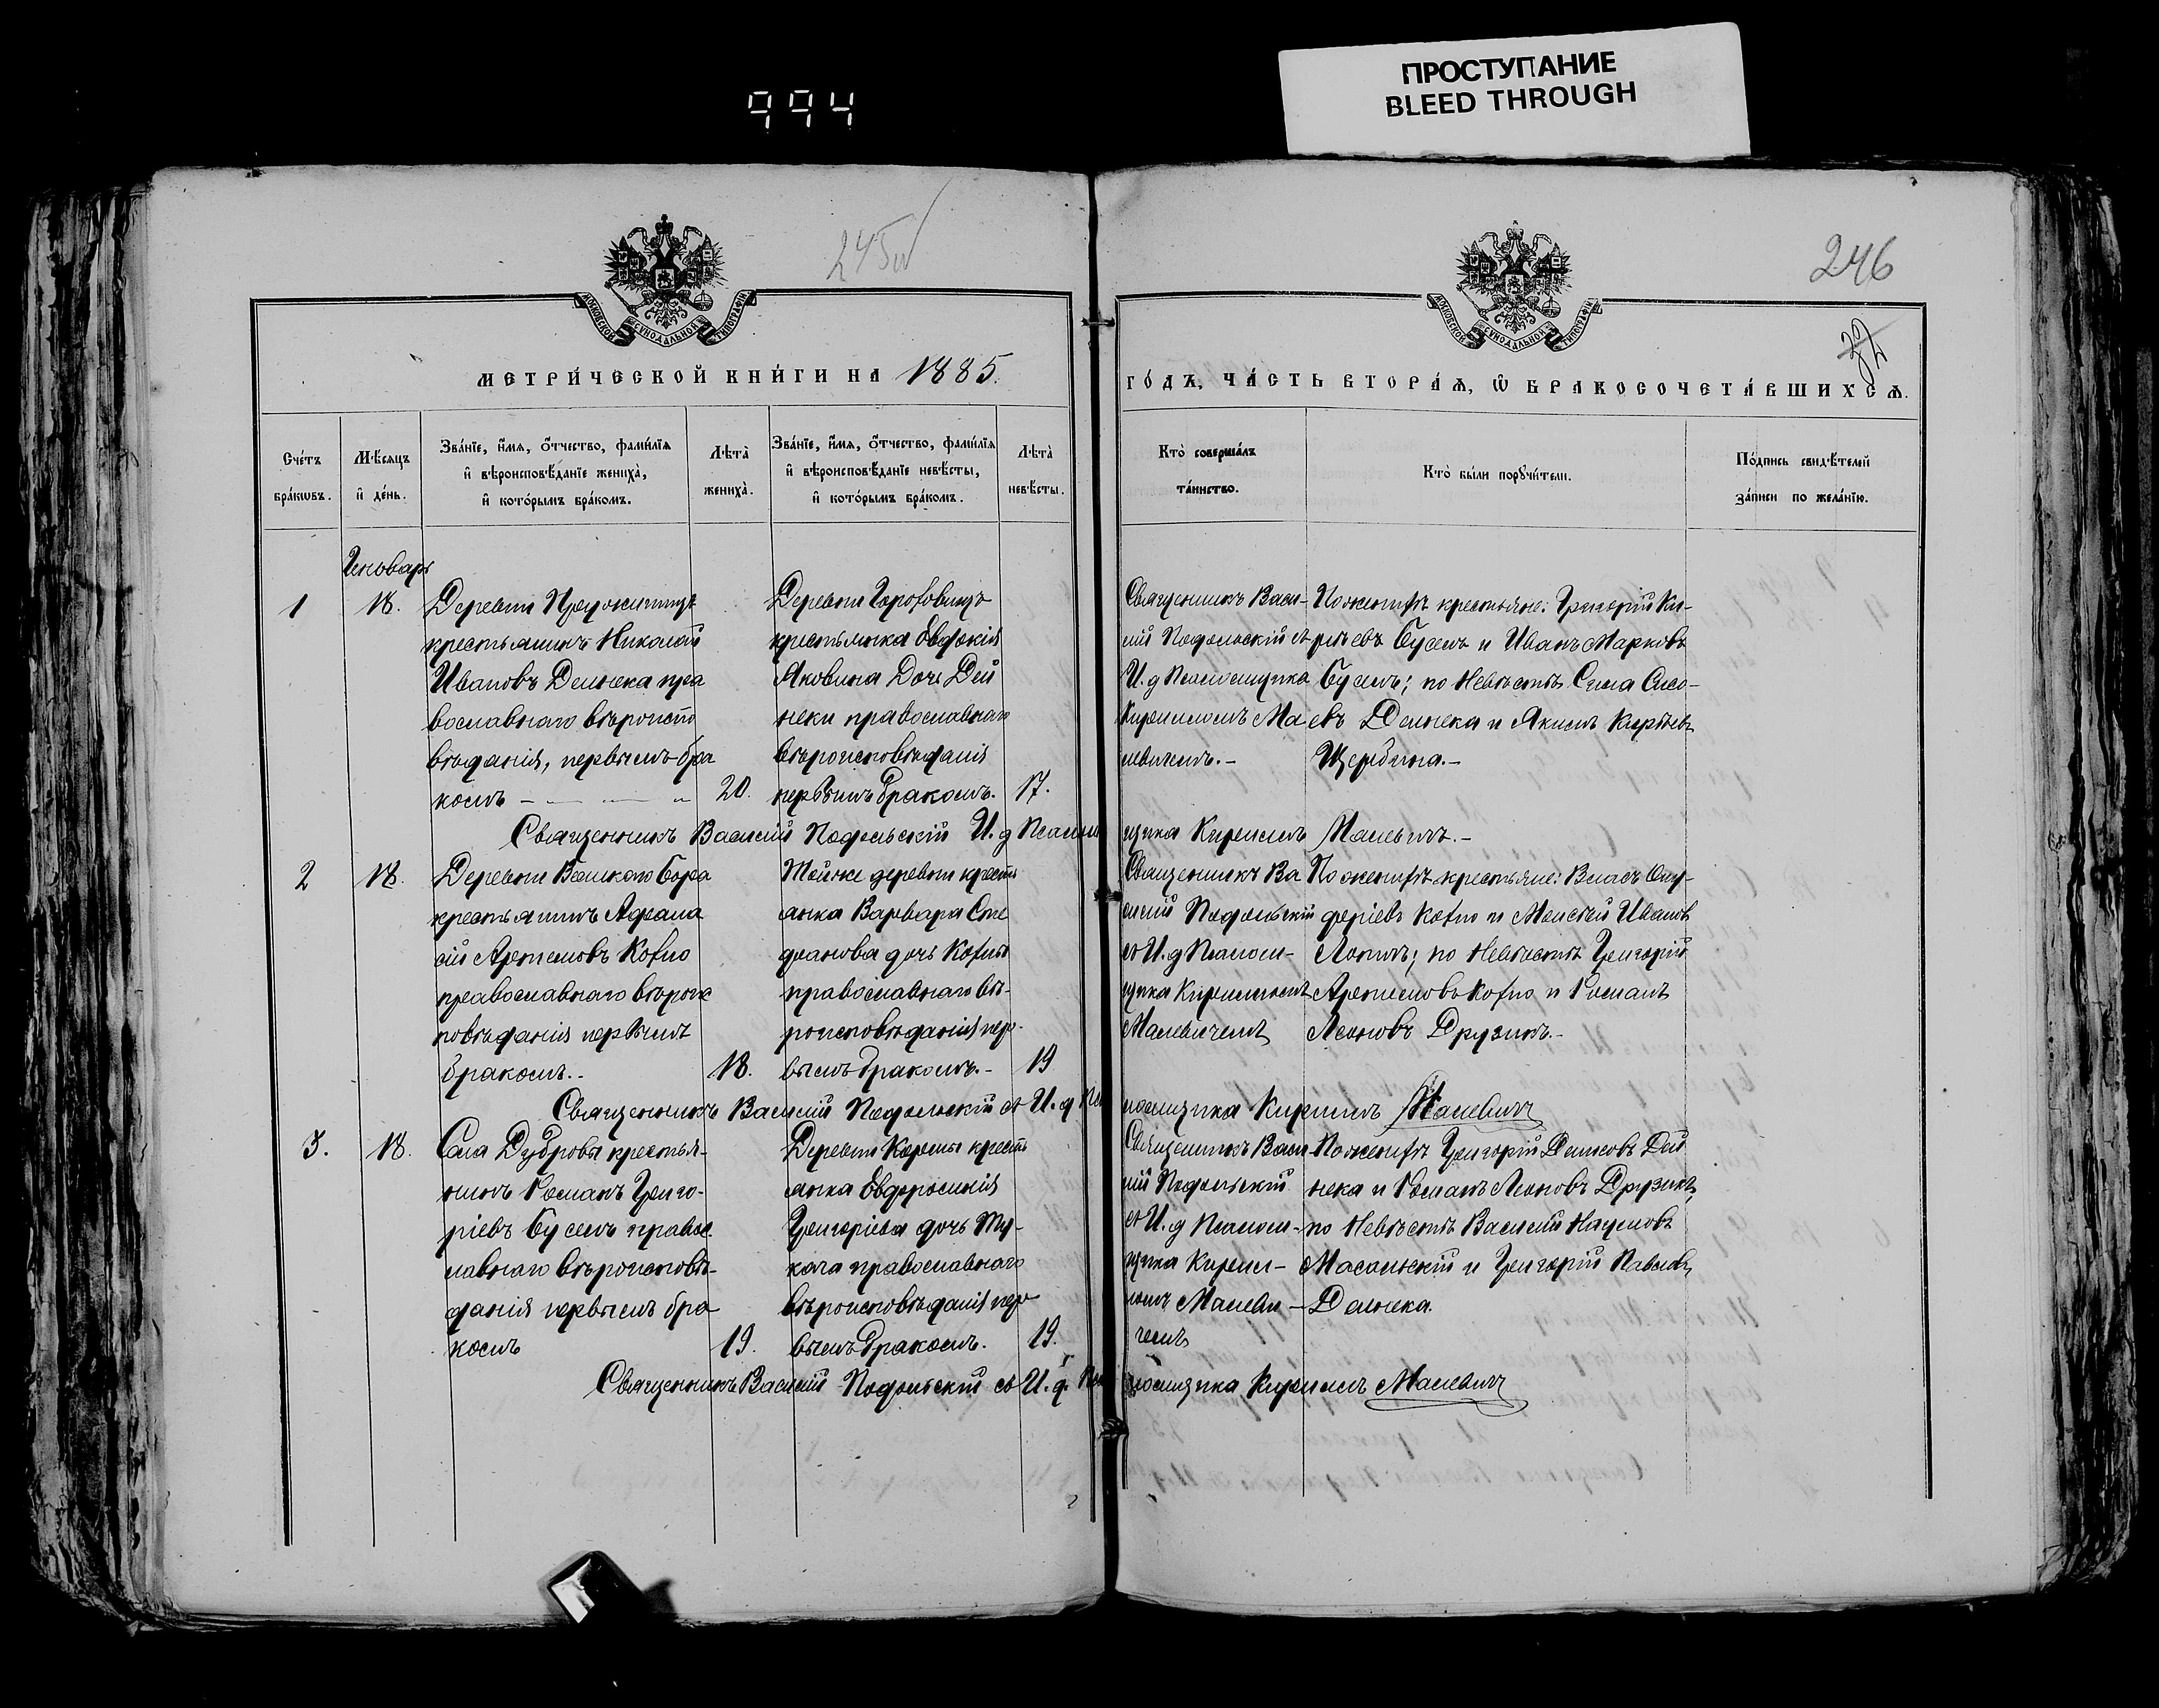 994
ПРОСТУПАНИЕ
BLEED THROUGH
245
246
МОСКОВСКОЙ СѴНОДАЛЬНОЙ ТИПОГРАФІИ
МОСКОВСКОЙ СѴНОДАЛЬНОЙ ТИПОГРАФІИ
МЕТРИ́ЧЕСКОЙ КНИ́ГИ НА 1885.
ГО́ДЪ, ЧА́СТЬ ВТОРА́Ѧ, Ѿ БРАКОСОЧЕТА́ВШИХСѦ.
Сче́тъ
бра́кѡвъ.
Мѣ́сяцъ
и де́нь.
Зва́нїе, и́мя, о́тчество, фами́лїя
и вѣроисповѣ́данїе жениха̀,
и кото́рымъ бра́комъ.
Лѣ́та̀
жениха̀.
Зва́нїе, и́мя, о́тчество, фами́лїя
и вѣроисповѣ́данїе невѣ́сты,
и кото́рымъ бра́комъ.
Лѣ́та̀
невѣ́сты.
Кто̀ соверша́лъ
та́инство.
Кто̀ бы́ли порꙋчи́тели.
По́дпись свидѣ́телей
за́писи по жела́нїю.
1
18.
Деревни
крестьянинъ Николай
Ивановъ Делнека пра
вославнаго вѣроиспо
вѣданія, первымъ бра
комъ
20.
Деревни
крестьянка Евдокія
Яковлева Дочь Дей
неки православнаго
вѣроисповѣданія
первымъ бракомъ.
17.
Священникъ Васи-
лій Подольскій съ
И. д Псаломщика
Кирилломъ Ма
левичемъ.-
По женихѣ крестьяне: Григорій Ки-
рѣевъ Бусель и Иванъ Марковъ
Бусель; по Невѣстѣ
евъ Делнека и Якимъ Кирѣевъ
Щербина.-
Священникъ Василій Подольскій И. д Псалом
щика Кириллъ Малевичъ.-
2
18.
Деревни Великаго Бора
крестьянинъ Афана
сій Артемовъ Кохно
православнаго вѣроис
повѣданія первымъ
бракомъ.-
18.
Тойже деревни кресть
янка Варвара Сте
фанова дочь Кохны
православнаго вѣ-
роисповѣданія пер-
вымъ бракомъ.-
19
Священникъ Ва
силій Подольскій
съ И. д Псалом-
щика Кирилломъ
Малевичемъ
По женихѣ крестьяне: Власъ Ону-
фріевъ Кохно и Моисей Ивановъ
по Невѣстѣ Григорій
Артемовъ Кохно и Романъ
Леоновъ Друзикъ.-
Священникъ Василій Подольскій съ И. д Пса
ломщика Кириллъ Малевичъ
3.
18.
Села Дубровы крестья-
нинъ Романъ Григо-
ріевъ Бусель правос
лавнаго вѣроисповѣ-
данія первымъ бра-
комъ
19.
Деревни кресть
янка Евфросинія
Григоріева дочь Тку-
кача православнаго
вѣроисповѣданія пер
вымъ бракомъ.
19.
Священникъ Васи
лій Подольскій
съ И. д Псалом-
щика Кирил-
ломъ Малеви-
чемъ
По женихѣ Григорій Дей
нека и Романъ Леоновъ Друзикъ,
по Невѣстѣ Василій Наумовъ
и Григорій Павловъ
Делнека.
Священникъ Василій Подольскій съ И. д. Пса
ломщика Кириллъ Малевичъ